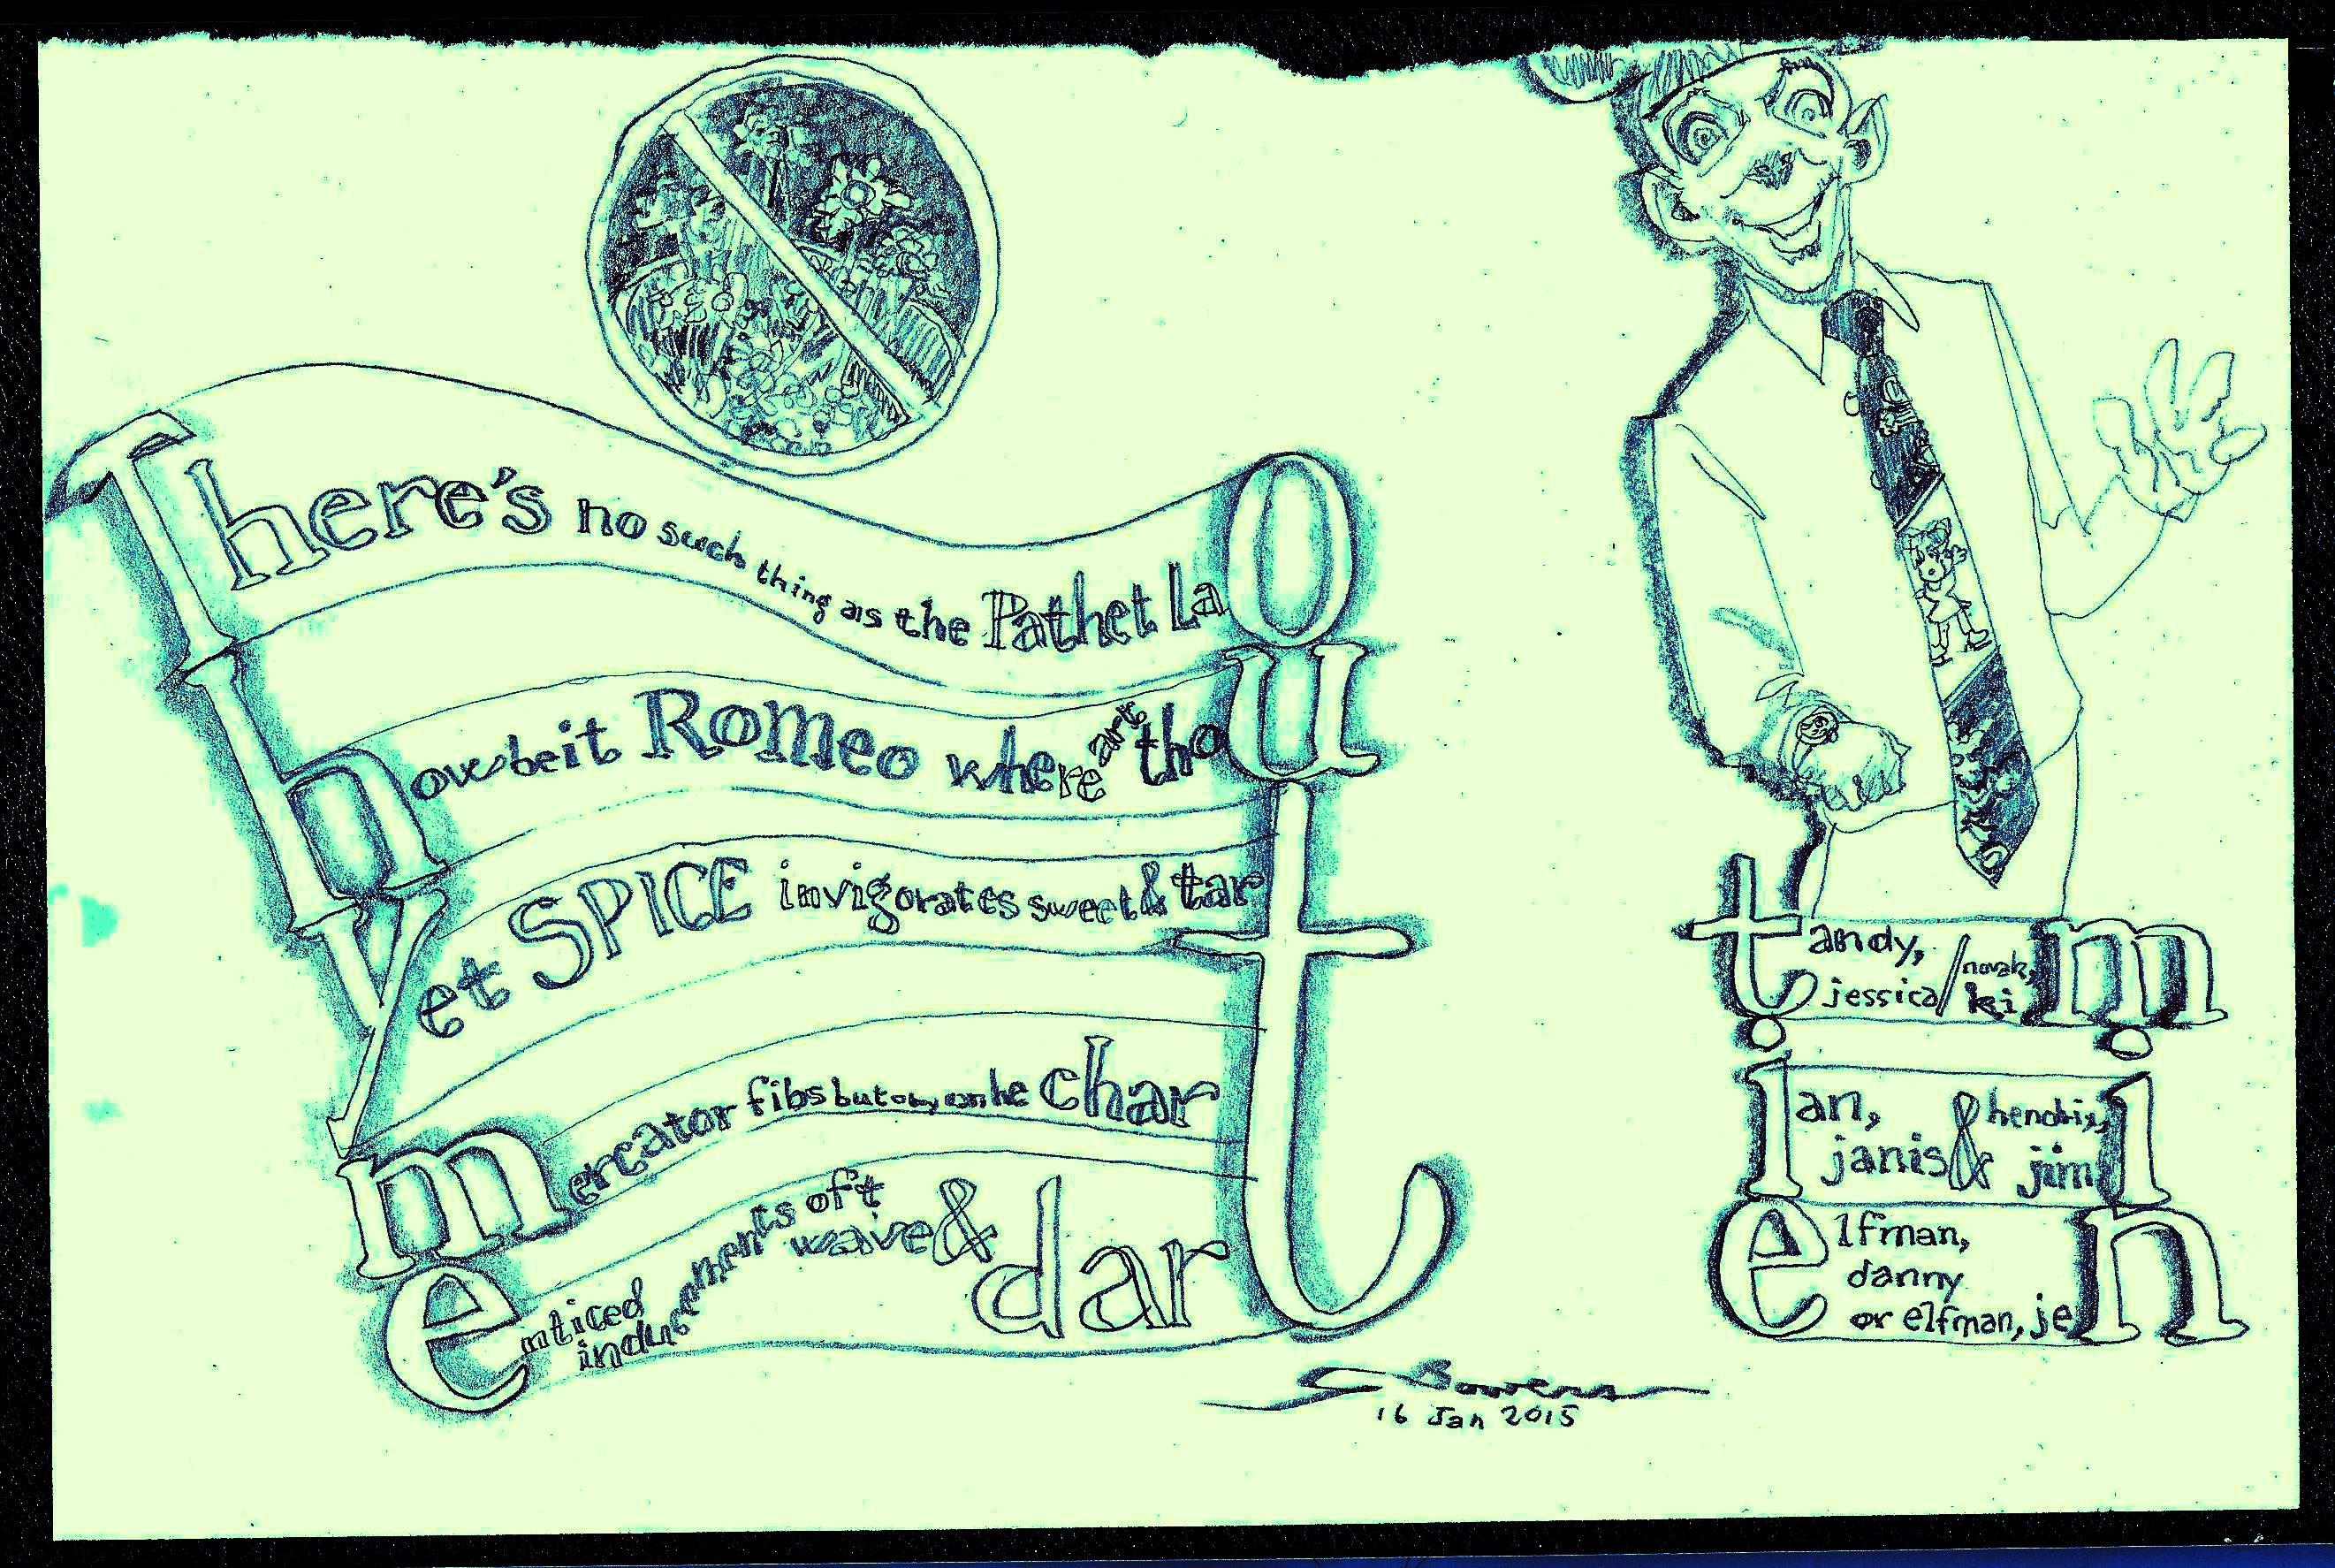 There's no such thing as the Pathet Lao
howbeit Romeo where art thou
yet SPICE invigorates sweet & tart
mercator fibs but oh, can he chart
enticed inducements oft waive & dart
tandy,
jessica/novak, kim
ian,
janis & hendrix, jimi
elfman,
danny
or elfman, jen
S Bowers
16 Jan 2015